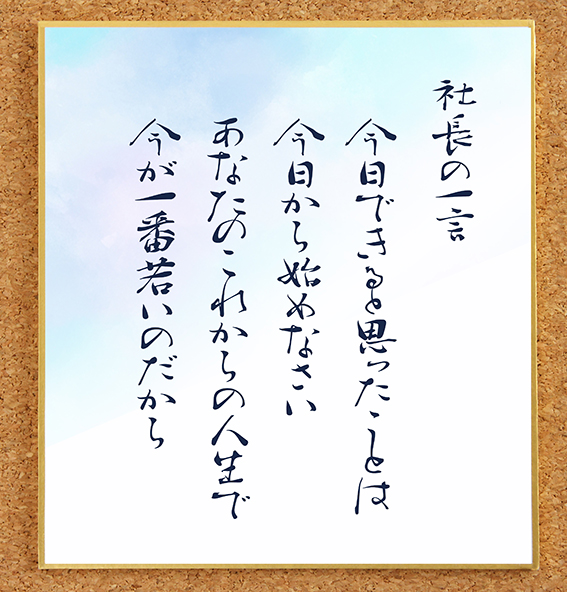 社長の一言
今日できると思ったことは
今日から始めなさい
あなたのこれからの人生で
今が一番若いのだから